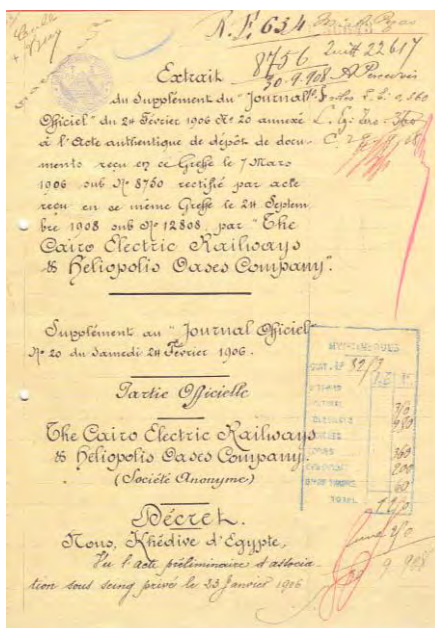 R.F. 634
8756
Quitt 22617
30.9.908 A Percevoir
Extrait
du Supplément du "Journal
Officiel" du 24 Février 1906 Nº 20 annexé
à l'Acte authentique de dépôt de docu-
ments reçu en ce Greffe le 7 Mars
1906 sub Nº 8750 rectifié par acte
reçu en ce même Greffe le 24 Septem
bre 1908 sub Nº 12808, par "The
Cairo Electric Railways
& Heliopolis Oases Company".
Supplément au "Journal Officiel"
Nº 20 du Samedi 24 Février 1906.
Partie Officielle
The Cairo Electric Railways
& Heliopolis Oases Company.
(Société Anonyme)
Décret.
Nous, Khédive d'Egypte,
Vu l'acte préliminaire d'associa-
tion sous seing privé le 23 Janvier 1906
HYPOTHEQUES
82/3
360
200
60
TOTAL
9.908